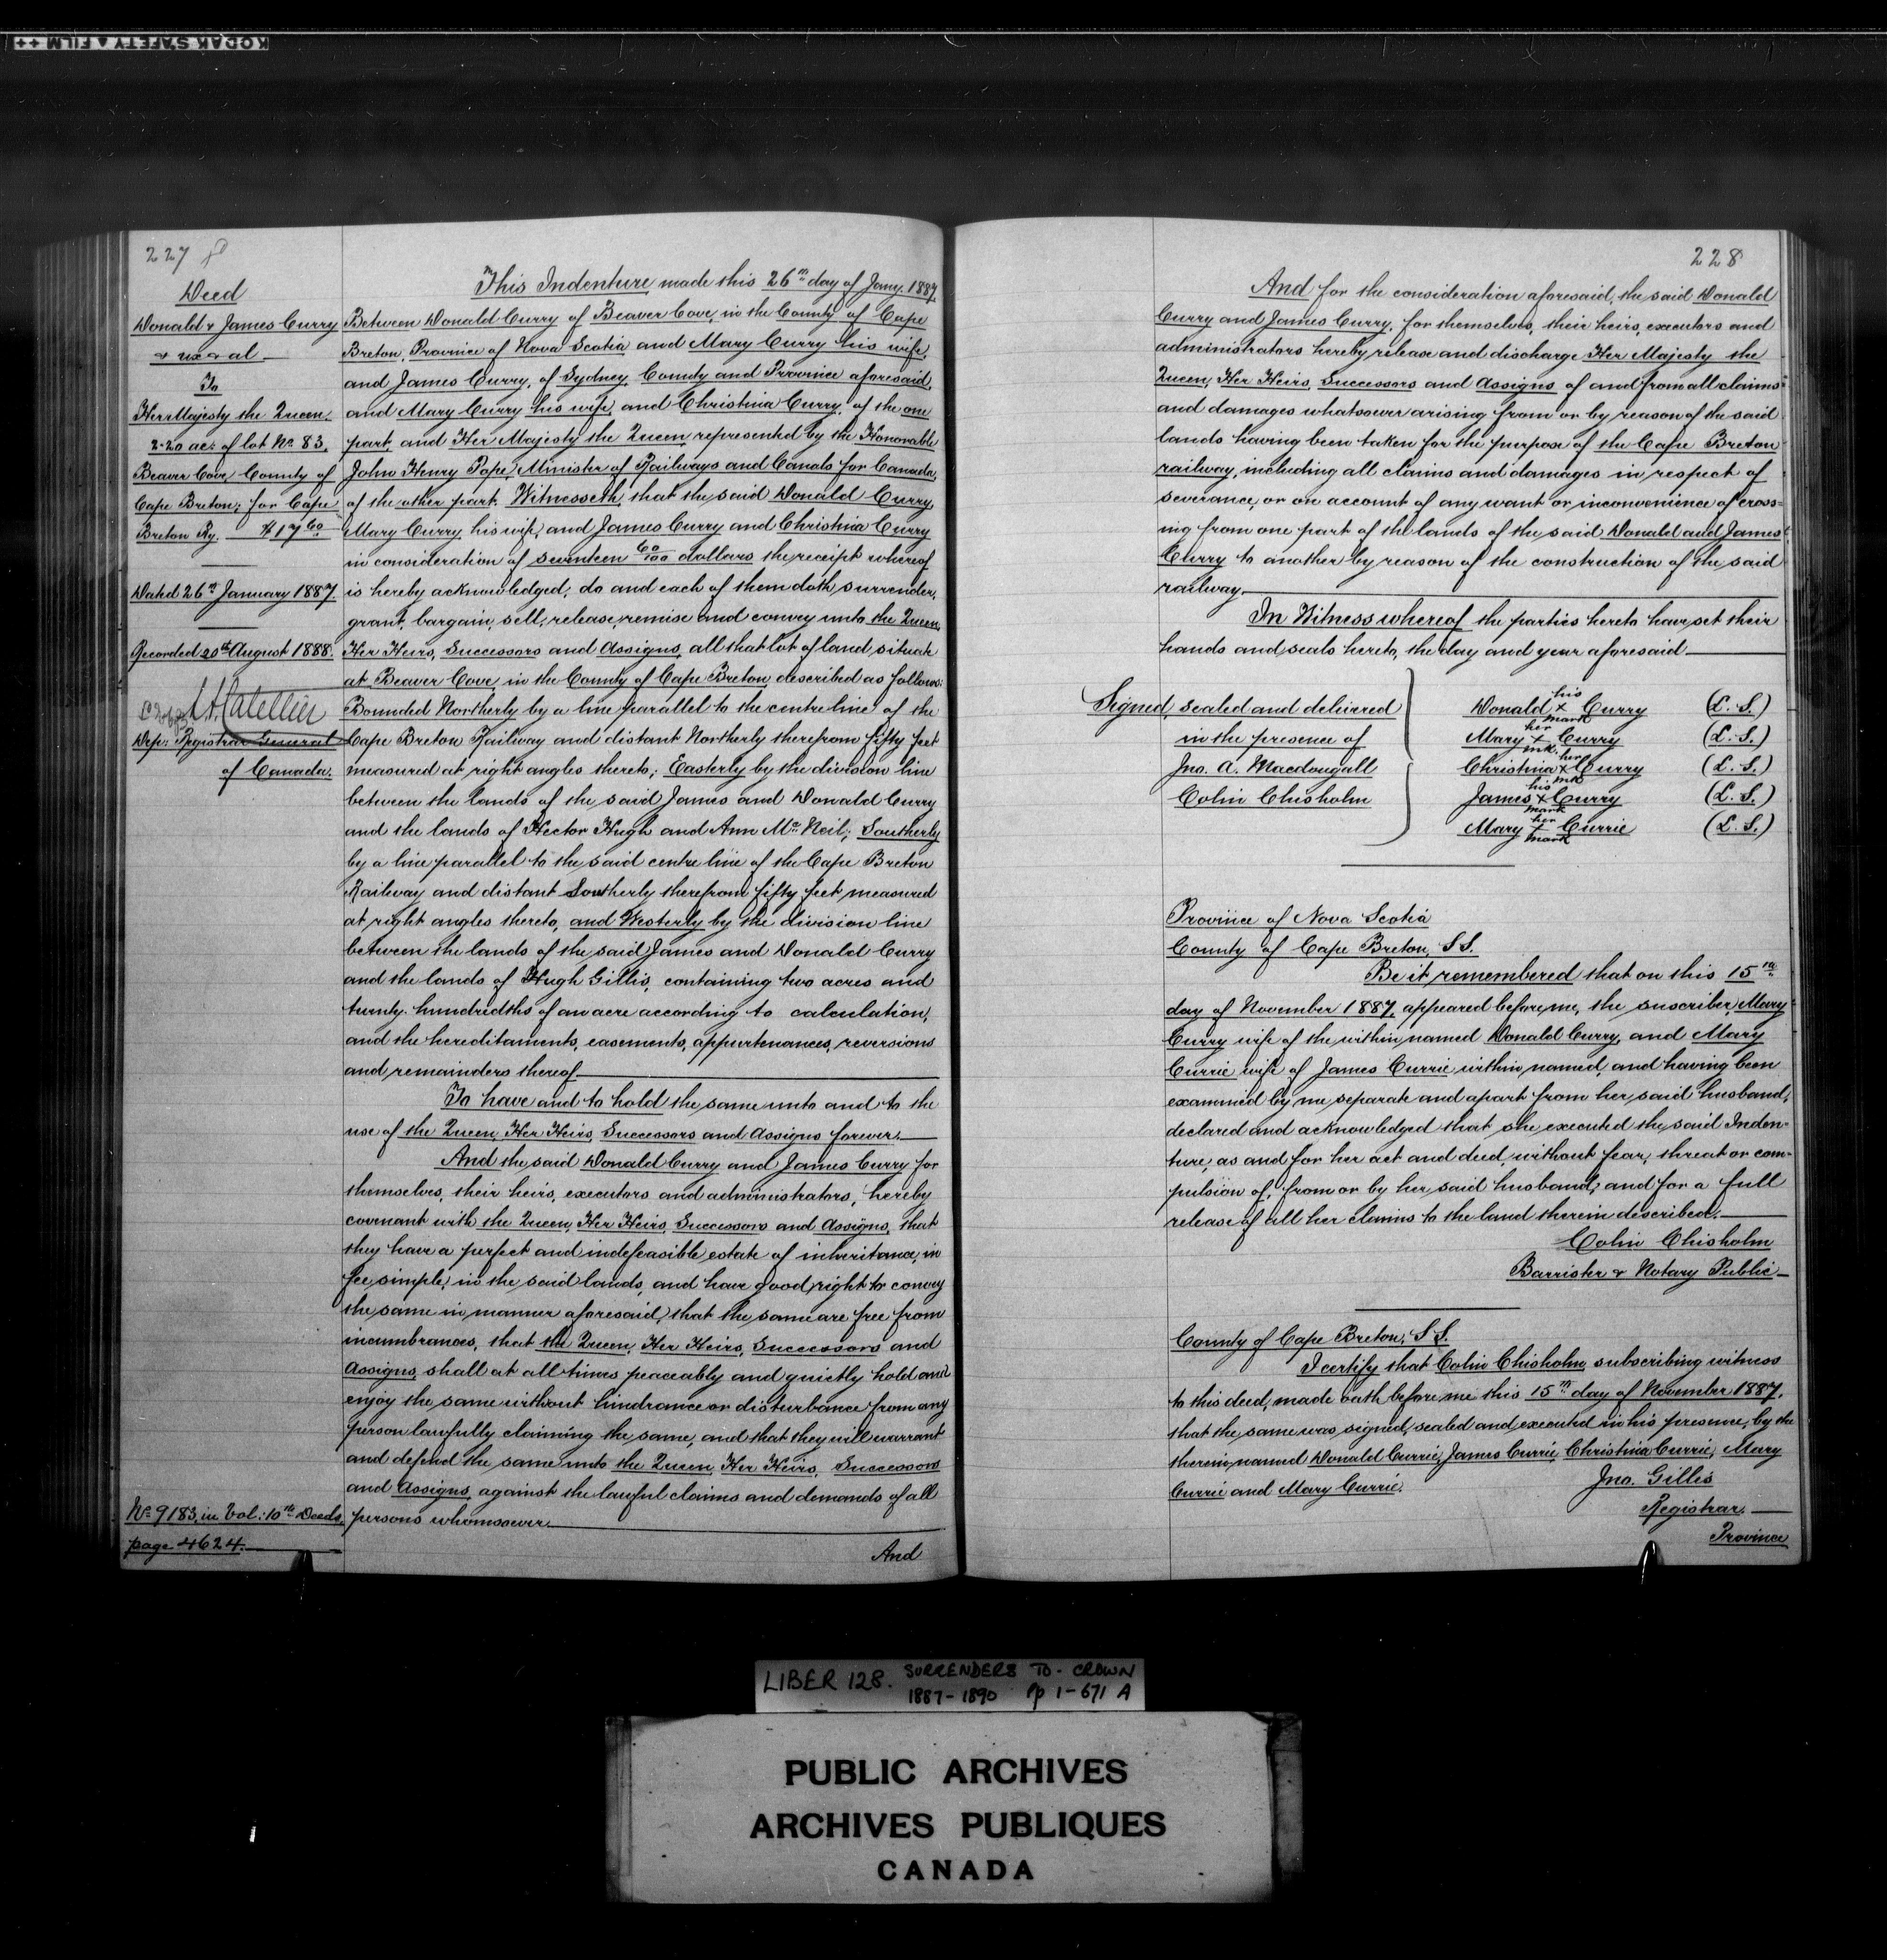 KODAK SAFETY FILM ++
227
Deed
Donald & James Curry
& ux & al
To
Her Majesty the Queen.
2.20 acs. of lot No. 83,
Beaver Cove, County of
Cape Breton; for Cape
Breton Ry. $17 60
Dated 26th January 1887.
Recorded 20th August 1888.
Dep: Registrar General
of Canada.
No 9183, in Vol: 10th Deeds,
page 4624.
This Indenture made this 26th day of Jany. 1887,
Between Donald Curry of Beaver Cove, in the County of Cape
Breton, Province of Nova Scotia and Mary Curry his wife,
and James Curry, of Sydney, County and Province aforesaid,
and Mary Curry his wife, and Christina Curry, of the one
part, and Her Majesty the Queen represented by the Honorable
John Henry Pope, Minister of Railways and Canals for Canada,
of the other part. Witnesseth, that the said Donald Curry,
Mary Curry, his wife, and James Curry and Christina Curry
in consideration of seventeen 60/100 dollars the receipt whereof
is hereby acknowledged; do and each of them doth surrender,
grant, bargain, sell, release, remise and convey unto the Queen,
Her Heirs, Successors and Assigns, all that lot of land, situate
at Beaver Cove, in the County of Cape Breton, described as follows:
Bounded Northerly by a line parallel to the centre line of the
Cape Breton Railway and distant Northerly therefrom fifty feet
measured at right angles thereto; Easterly by the division line
between the lands of the said James and Donald Curry
and the lands of Hector Hugh and Ann McNeil; Southerly
by a line parallel to the said centre line of the Cape Breton
Railway and distant Southerly therefrom fifty feet measured
at right angles thereto, and Westerly by the division line
between the lands of the said James and Donald Curry
and the lands of Hugh Gillis, containing two acres and
twenty hundredths of an acre according to calculation,
and the hereditaments, easements, appurtenances, reversions
and remainders thereof
To have and to hold the same unto and to the
use of the Queen, Her Heirs, Successors and Assigns forever.
And the said Donald Curry and James Curry for
themselves, their heirs, executors and administrators, hereby
covenant with the Queen, Her Heirs, Successors and Assigns, that
they have a perfect and indefeasible estate of inheritance, in
fee simple, in the said lands, and have good right to convey
the same in manner aforesaid, that the same are free from
incumbrances, that the Queen, Her Heirs, Successors and
Assigns, shall at all times peaceably and quietly hold and
enjoy the same without hindrance or disturbance from any
person lawfully claiming the same, and that they will warrant
and defend the same unto the Queen, Her Heirs, Successors
and Assigns, against the lawful claims and demands of all
persons whomsoever.
And
228
And for the consideration aforesaid, the said Donald
Curry and James Curry, for themselves, their heirs, executors and
administrators hereby release and discharge Her Majesty the
Queen, Her Heirs, Successors and Assigns of and from all claims
and damages whatsoever arising from or by reason of the said
lands having been taken for the purpose of the Cape Breton
railway, including all claims and damages in respect of
severance, or on account of any want or inconvenience of cross-
ing from one part of the lands of the said Donald and James
Curry to another by reason of the construction of the said
railway.
In Witness whereof the parties hereto have set their
hands and seals hereto, the day and year aforesaid
Signed, sealed and delivered
in the presence of
Jno. A. Macdougall
Colin Chisholm
Donald his x mark Curry (L.S.)
Mary her + mk. Curry (L.S.)
Christina her x mk Curry (L.S.)
James his x mark Curry (L.S.)
Mary her + mark Currie (L.S.)
Province of Nova Scotia
County of Cape Breton, S S.
Be it remembered that on this 15th
day of November 1887, appeared before me, the suscriber, Mary
Curry wife of the within named Donald Curry, and Mary
Currie wife of James Currie within named, and having been
examined by me, separate and apart from her said husband,
declared and acknowledged that she executed the said Inden-
ture, as and for her act and deed, without fear, threat or com-
pulsion of, from or by her said husband; and for a full
release of all her claims to the land therein described.
Colin Chisholm
Barrister & Notary Public
County of Cape Breton, S S.
I certify that Colin Chisholm, subscribing witness
to this deed, made oath before me this 15th day of November 1887,
that the same was signed, sealed and executed in his presence, by the
therein named Donald Currie, James Currie, Christina Currie, Mary
Currie and Mary Currie.
Jno. Gillis
Registrar.
Province
LIBER 128. SURRENDERS TO - CROWN
1887-1890 pp 1-671 A
PUBLIC ARCHIVES
ARCHIVES PUBLIQUES
CANADA